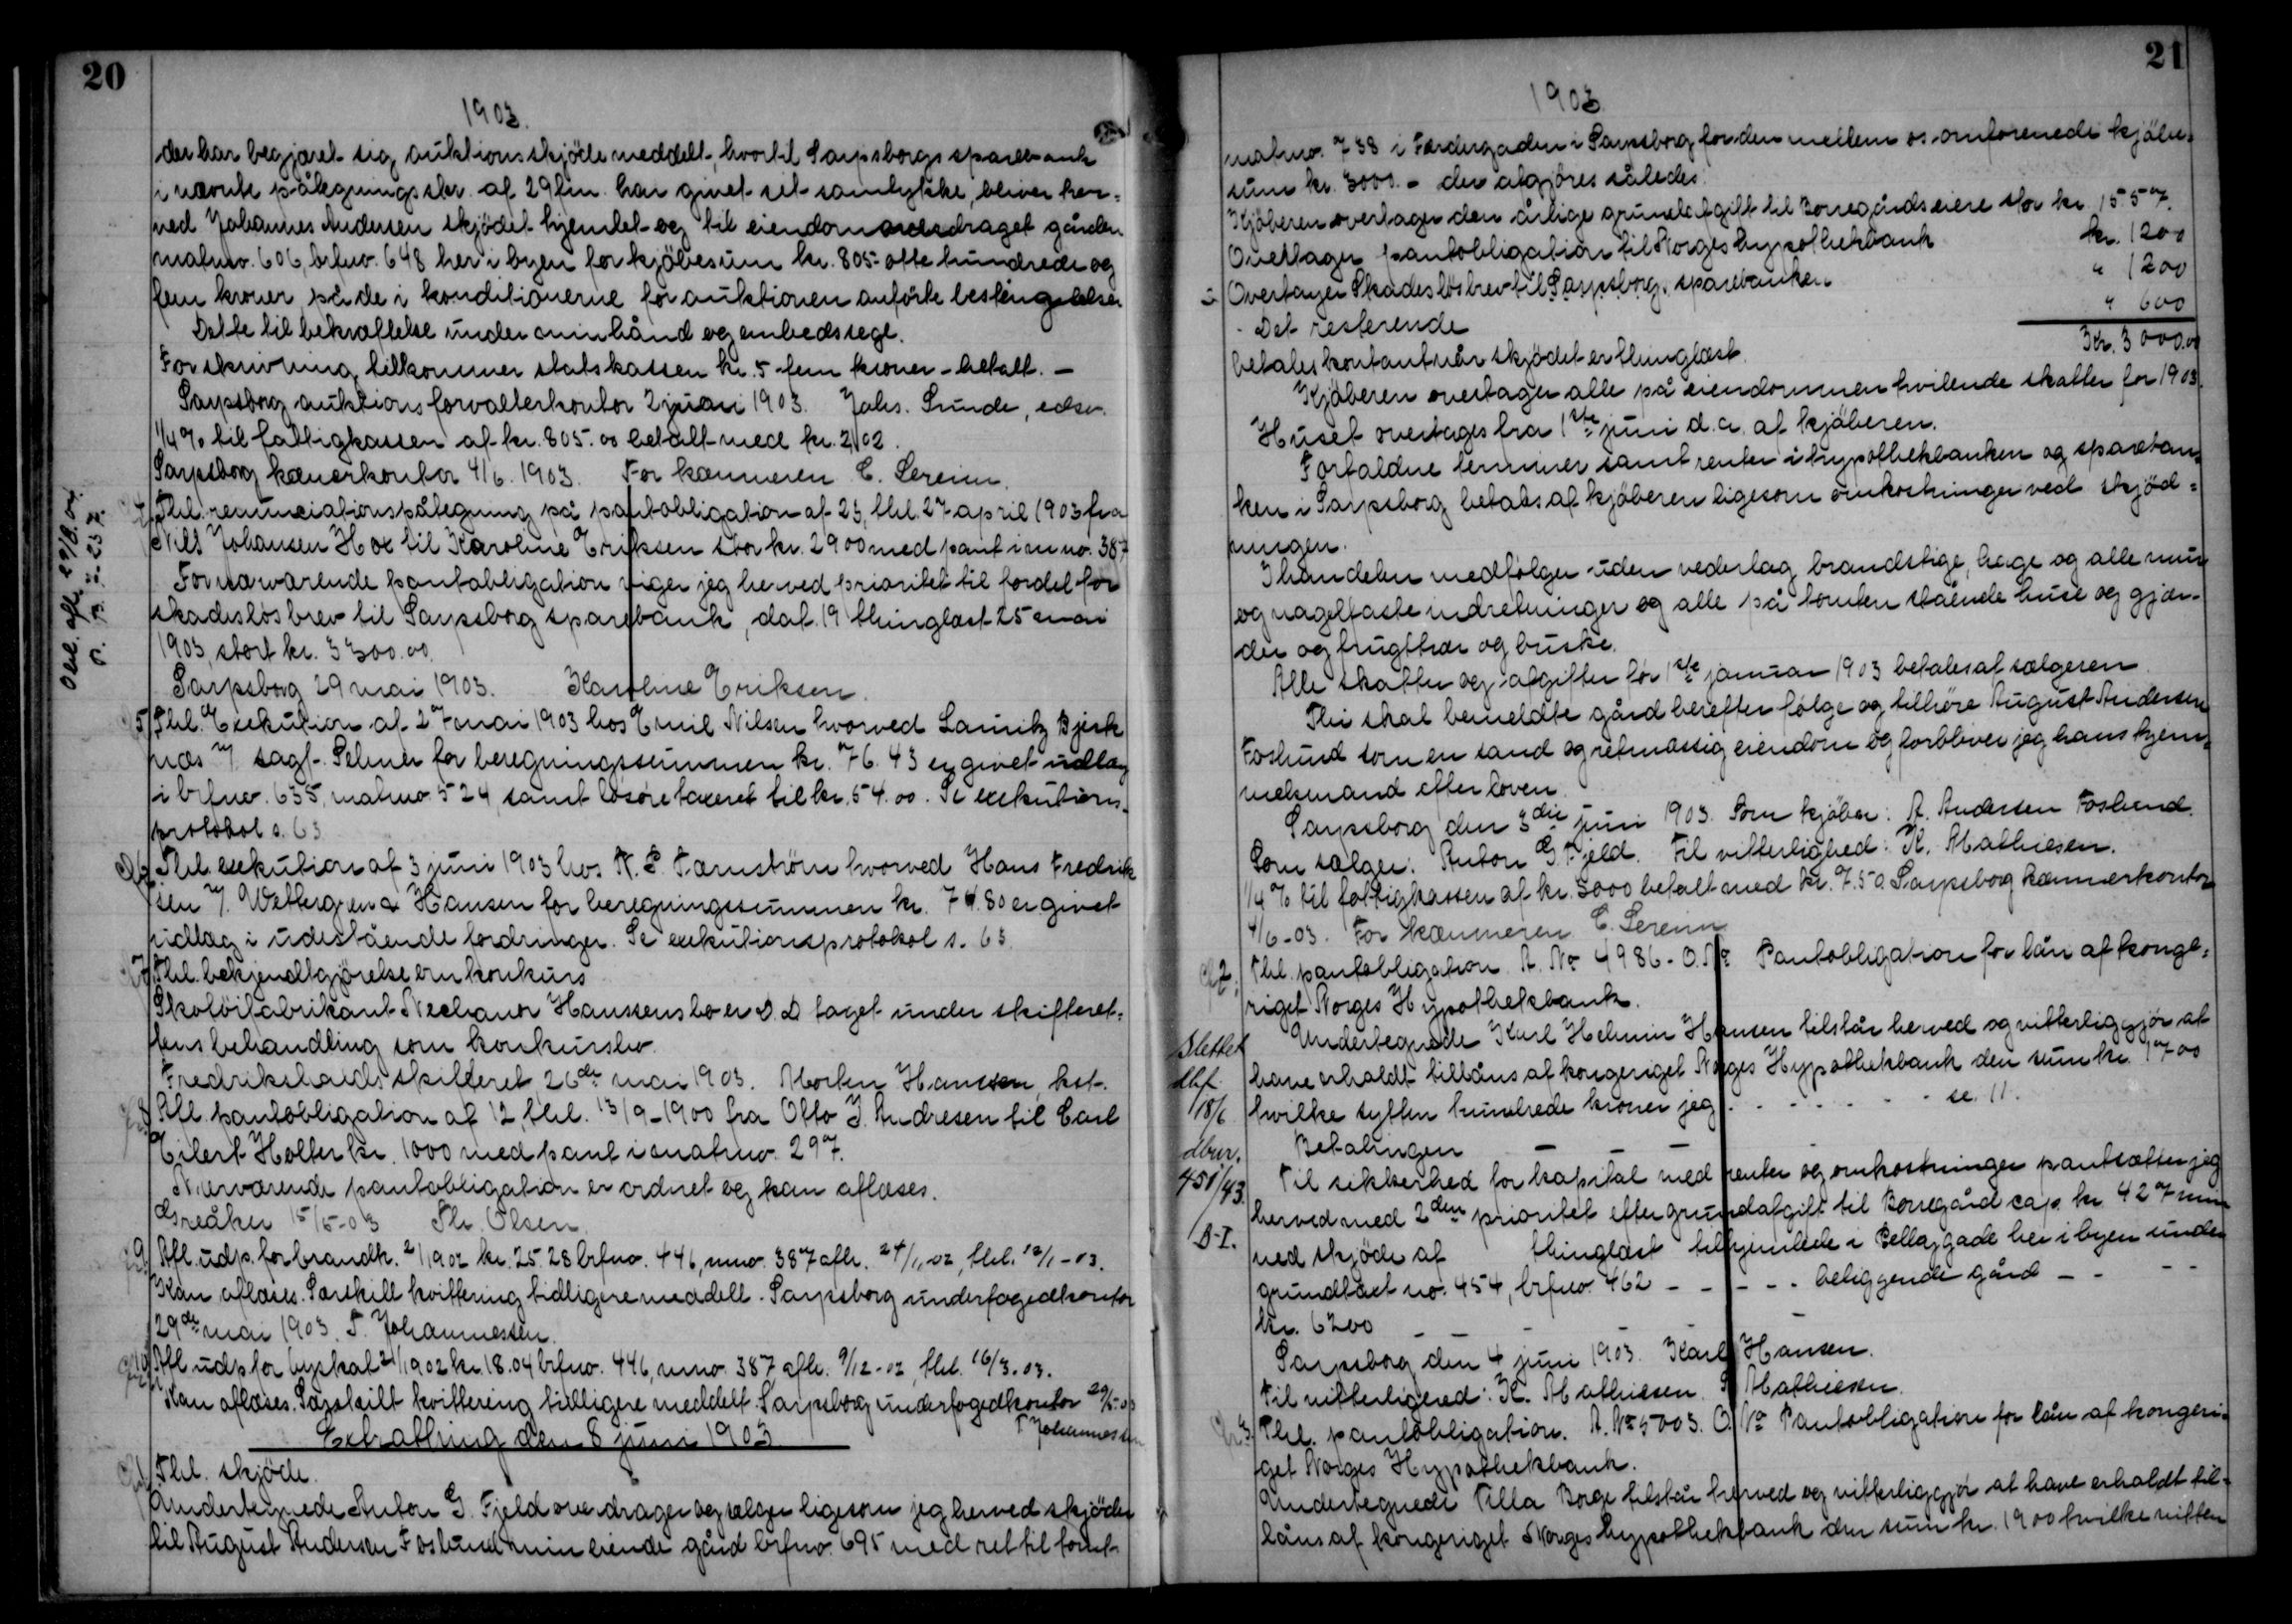 20
1903.
der har begjæret sig auktionsskjöde meddelt, hvortil Sarpsborgs sparebank
i nævnte påtegningsskr. af 29 fm. har givet sit samtykke, bliver her-
ved Johannes Andersen skjödet hjemlet og til eiendom overdraget gården
matrno. 606, brfno. 648 her i byen for kjöbesum kr. 805.- otte hundrede og
fem kroner på de i konditionerne for auktionen anförte bestingelser
Dette til bekræftelse under min hånd og embedssegl.
For skrivning tilkommer statskassen kr. 5 - fem kroner - betalt. -
Sarpsborg auktionsforvalterkontor 2 juni 1903. Johs. Sunde, edsv.
1/4 % til fattigkassen af kr. 805.00 betalt med kr. 2,02.
Sarpsborg kæmnerkontor 4/6 1903. For kæmneren C. Sereim.
4, Thl. renunciationspåtegning på pantobligation af 23, thl. 27 april 1903 fra
Nils Johansen Hox til Karoline Eriksen stor kr. 2900 med pant i m no. 387
Obl. afl. 29/8.04.
Fornærværende pantobligation viger jeg herved prioritet til fordel for
skadeslösbrev til Sarpsborg sparebank, dat. 19 thinglæst 25 mai
1903, stort kr. 3300.00.
Sarpsborg 29 mai 1903. Karoline Eriksen.
5, Thl. Exekution af 27 mai 1903 hos Emil Nilsen hvorved Lauritz Bjerk
næs v/ sagf. Selmer for beregningssummen kr. 76.43 er givet udlæg
i brfno. 635, matrno. 524 samt lösöre taxeret til kr. 54.00. Se exekutions-
protokol s. 63
6, Thl. exekution af 3 juni 1903 hos N. P. Tærnström hvorved Hans Fredrik
sen v/ Wettergren & Hansen for beregningssummen kr. 74.80 er givet
udlæg i udestående fordringer. Se exekutionsprotokol s. 63.
7, Thl. bekjendtgjörelse om konkurs
Skotöifabrikant Nechanor Hanssens bo er D. D. taget under skifteret-
tens behandling som konkursbo.
Fredrikshalds skifteret, 26de mai 1903. Morten Hanssen, kst.
8, Afl. pantobligation af 12, thl. 13/9-1900 fra Otto J. Andresen til Carl
Eilert Holter kr. 1000 med pant i matrno. 297.
Nærværende pantobligation er ordnet og kan aflæses.
Greåker 15/5-03 Thr. Olsen.
9, Afl. udp. for brandk. 2/1902 kr. 25.28 brfno. 446, mno. 387 afh. 24/11-02, thl. 12/1-03.
Kan aflæses. Særskilt kvittering tidligere meddelt. Sarpsborg underfogedkontor
29de mai 1903. T. Johannessen.
10, Afl. udp. for byskat 21/1902 kr. 18.04 brfno. 446, mno. 387, afh. 9/12-02, thl. 16/3-03.
Kan aflæses. Særskilt kvittering tidligere meddelt. Sarpsborg underfogedkontor 29/5-03
T Johannessen
Extrathing den 8 juni 1903
1, Thl. skjöde.
Undertegnede Anton G. Fjeld overdrager og sælger ligesom jeg herved skjöder
til August Andersen Foslund min eiende gård brfno. 695 med ret til tomt
21
1903
matrno. 738 i Færdergaden i Sarpsborg for den mellem os omforenede kjöbe-
sum kr. 3000.- der afgjöres således:
Kjöberen overtager den årlige grundafgift til Borregårds eiere stor kr. 15.57.
Overtager pantobligation til Norges hypothekbank kr. 1200
Overtager Skadeslösbrev til Sarpsborg. sparebanken " 1200
Det resterende " 600
betales kontant når skjödet er thinglæst. Kr. 3000.00
Kjöberen overtager alle på eiendommen hvilende skatter for 1903.
Huset overtages fra 1ste juni d. a. af kjöberen.
Forfaldne terminer samt renter i hypothekbanken og spareban-
ken i Sarpsborg betales af kjöberen ligesom omkostninger ved skjöd-
ningen.
I handelen medfölger uden vederlag brandstige, hage og alle mur
og nagelfaste indretninger og alle på tomten stående huse og gjær-
der og frugttrær og buske.
Alle skatter og afgifter för 1ste januar 1903 betales af sælgeren
Thi skal bemeldte gård herefter fölge og tilhöre August Andersen
Foslund som en sand og retmæssig eiendom og forbliver jeg hans hjem-
melsmand efter loven.
Sarpsborg den 3die juni 1903. Som kjöber: A. Andersen Foslund.
Som sælger: Anton G. Fjeld. Til vitterlighed: K. Mathiesen.
1/4 % til fattigkassen af kr. 3000 betalt med kr. 7.50. Sarpsborg kæmnerkontor
4/6-03. For kæmneren C. Sereim
2, Thl. pantobligation. A. No 4986 - O. No Pantobligation for lån af konge-
riget Norges Hypothekbank.
Slettet
dbf.
18/6
dbnr.
451/43.
B-I.
Undertegnede Karl Helmin Hansen tilstår herved og vitterliggjör at
have erholdt tillåns af kongeriget Norges Hypothekbank den sum kr. 1700
hvilke sytten hundrede kroner jeg - - - - - - se. 11.
Betalingen - - - -
Til sikkerhed for kapital med renter og omkostninger pantsætter jeg
herved med 2den prioritet efter grundafgift til Borregård cap. kr. 427 min
ved skjöde af thinglæst tilhjemlede i Pellaggade her i byen under
grundtaxt no. 454, brfno. 462 - - - - - beliggende gård - - - -
kr. 6200 - - - - -
Sarpsborg den 4 juni 1903. Karl Hansen.
Til vitterlighed: K. Mathiesen. P. Mathiesen.
3, Thl. pantobligation. A. No 5003. O. No Pantobligation for lån af kongeri-
get Norges Hypothekbank.
Undertegnede Tilla Borge tilstår herved og vitterliggjör at have erholdt til-
låns af kongeriget Norges hypothekbank den sum kr. 1900 hvilke nitten